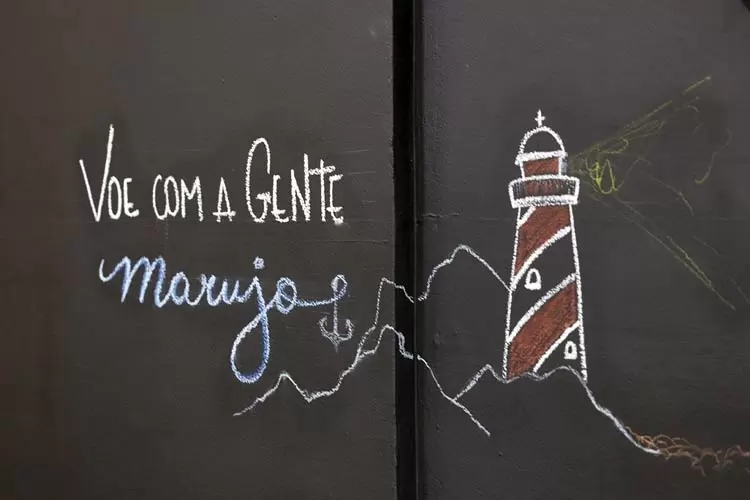 VOE COM A GENTE
Marujo